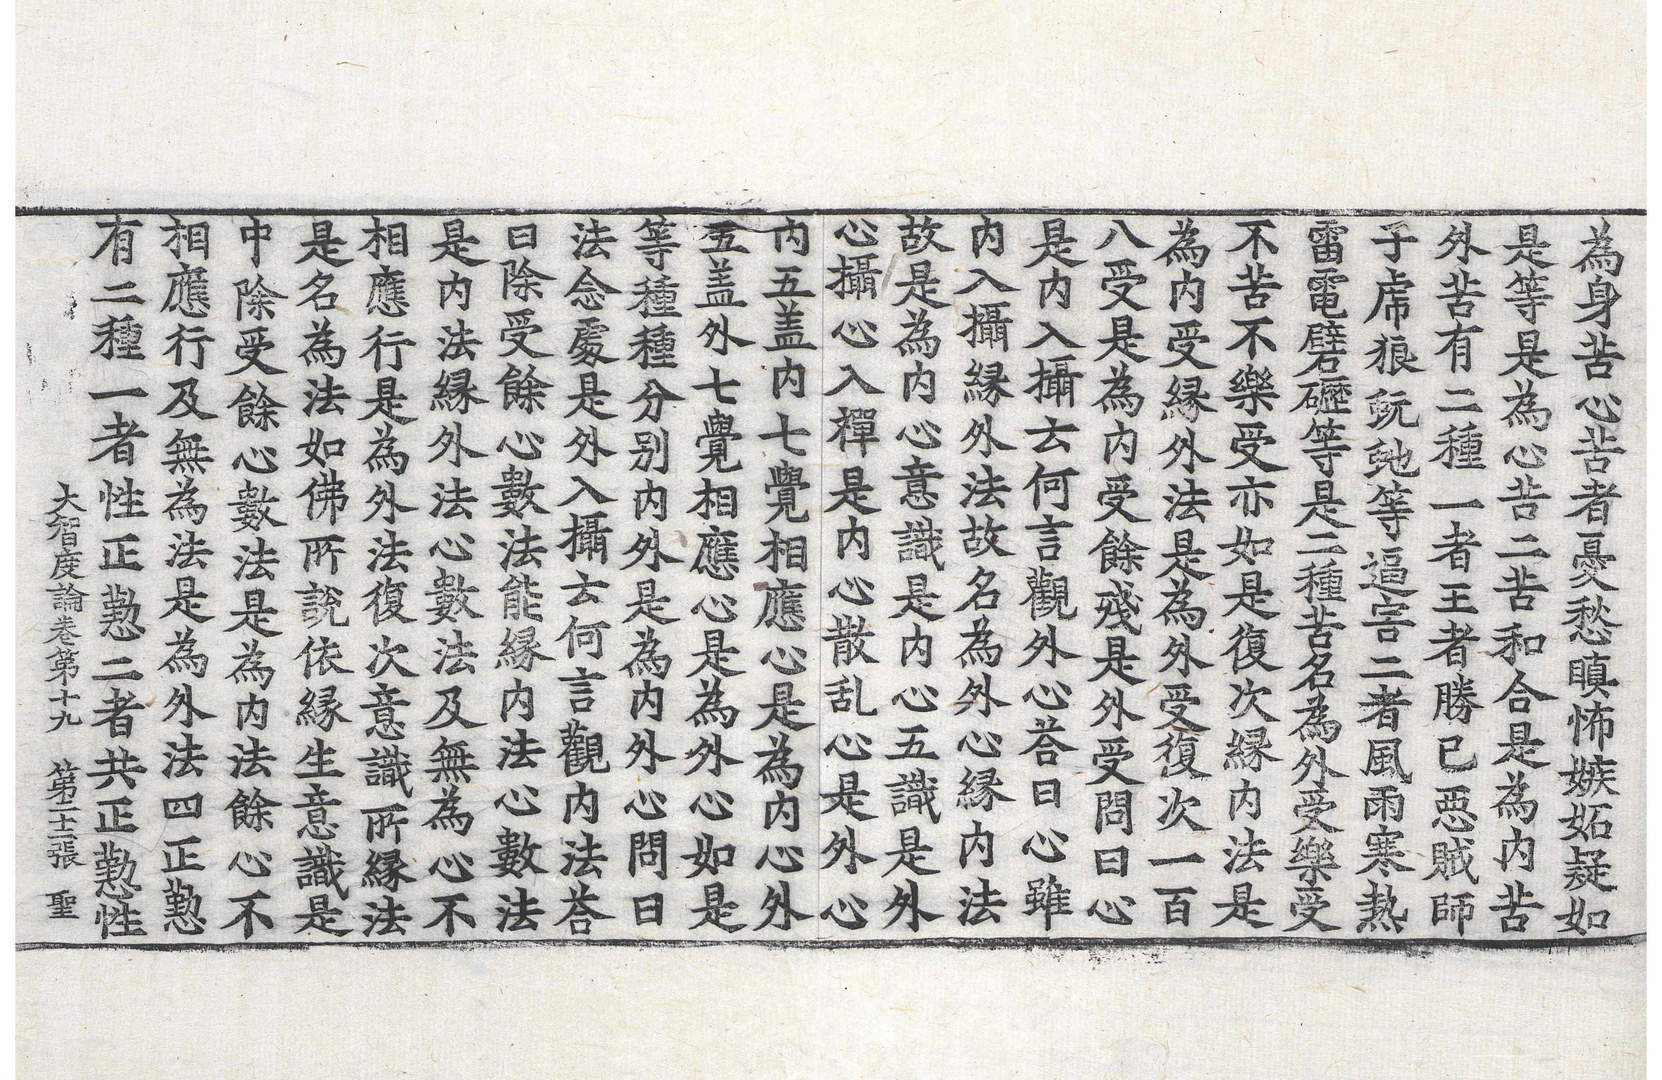 為身苦心苦者憂愁瞋怖嫉妬疑如
是等是為心苦二苦和合是為内苦
外苦有二種一者王者勝己惡賊師
子虎狼蚖虵等逼害二者風雨寒熱
雷電礔礰等是二種苦名為外受樂受
不苦不樂受亦如是復次縁内法是
為内受縁外法是為外受復次一百
八受是為内受餘殘是外受問曰心
是内入攝云何言觀外心荅曰心雖
内入攝縁外法故名為外心縁内法
故是為内心意識是内心五識是外
心攝心入禪是内心散乱心是外心
内五盖内七覺相應心是為内心外
五盖外七覺相應心是為外心如是
等種種分別内外是為内外心問曰
法念處是外入攝云何言觀内法荅
曰除受餘心數法能縁内法心數法
是内法縁外法心數法及無為心不
相應行是為外法復次意識所縁法
是名為法如佛所說依縁生意識是
中除受餘心數法是為内法餘心不
相應行及無為法是為外法四正懃
有二種一者性正懃二者共正懃性
大智度論卷第十九 第二十一張 聖